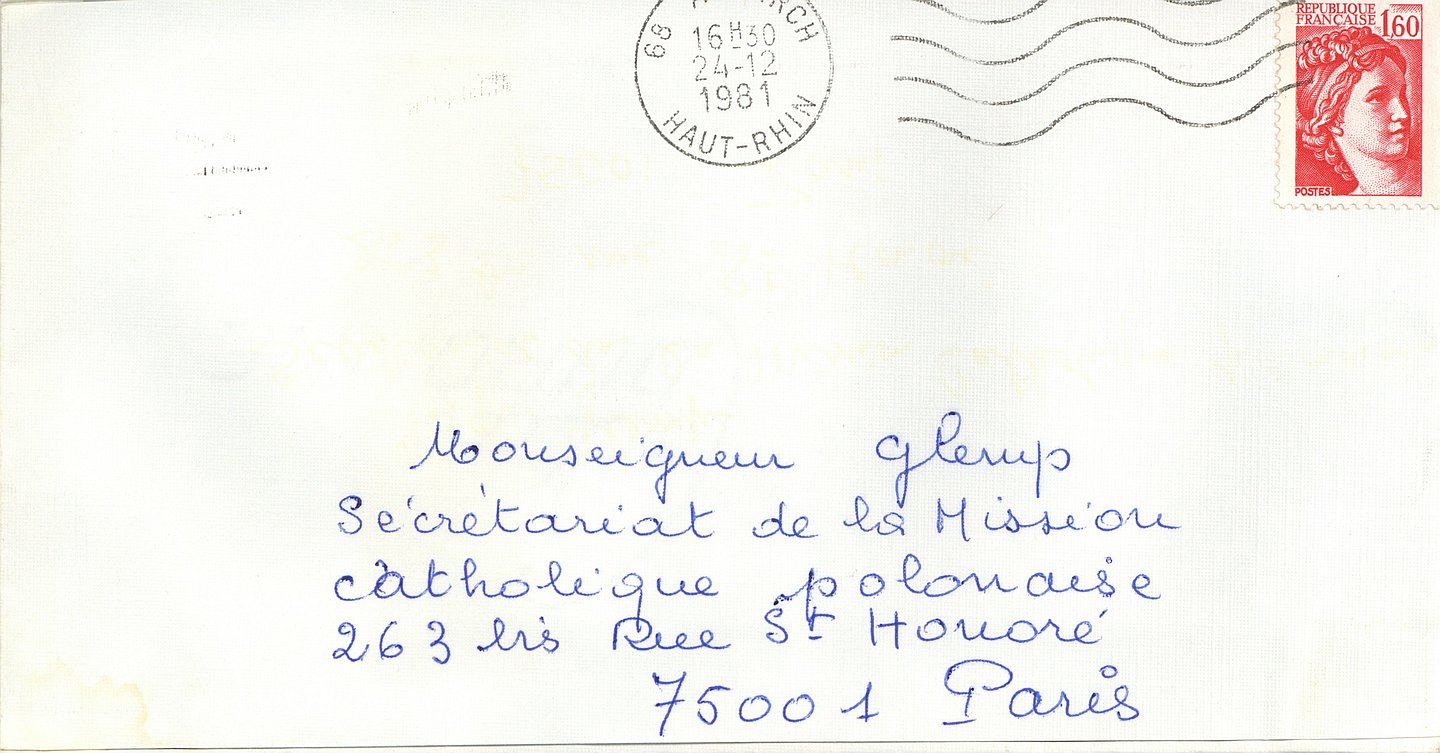 68
16H30
24-12
1981
HAUT-RHIN
REPUBLIQUE
FRANÇAISE 1,60
POSTES
Monseigneur Glemp
Sécrétariat de la Mission
catholique polonaise
263 bis Rue St Honoré
75001 Paris